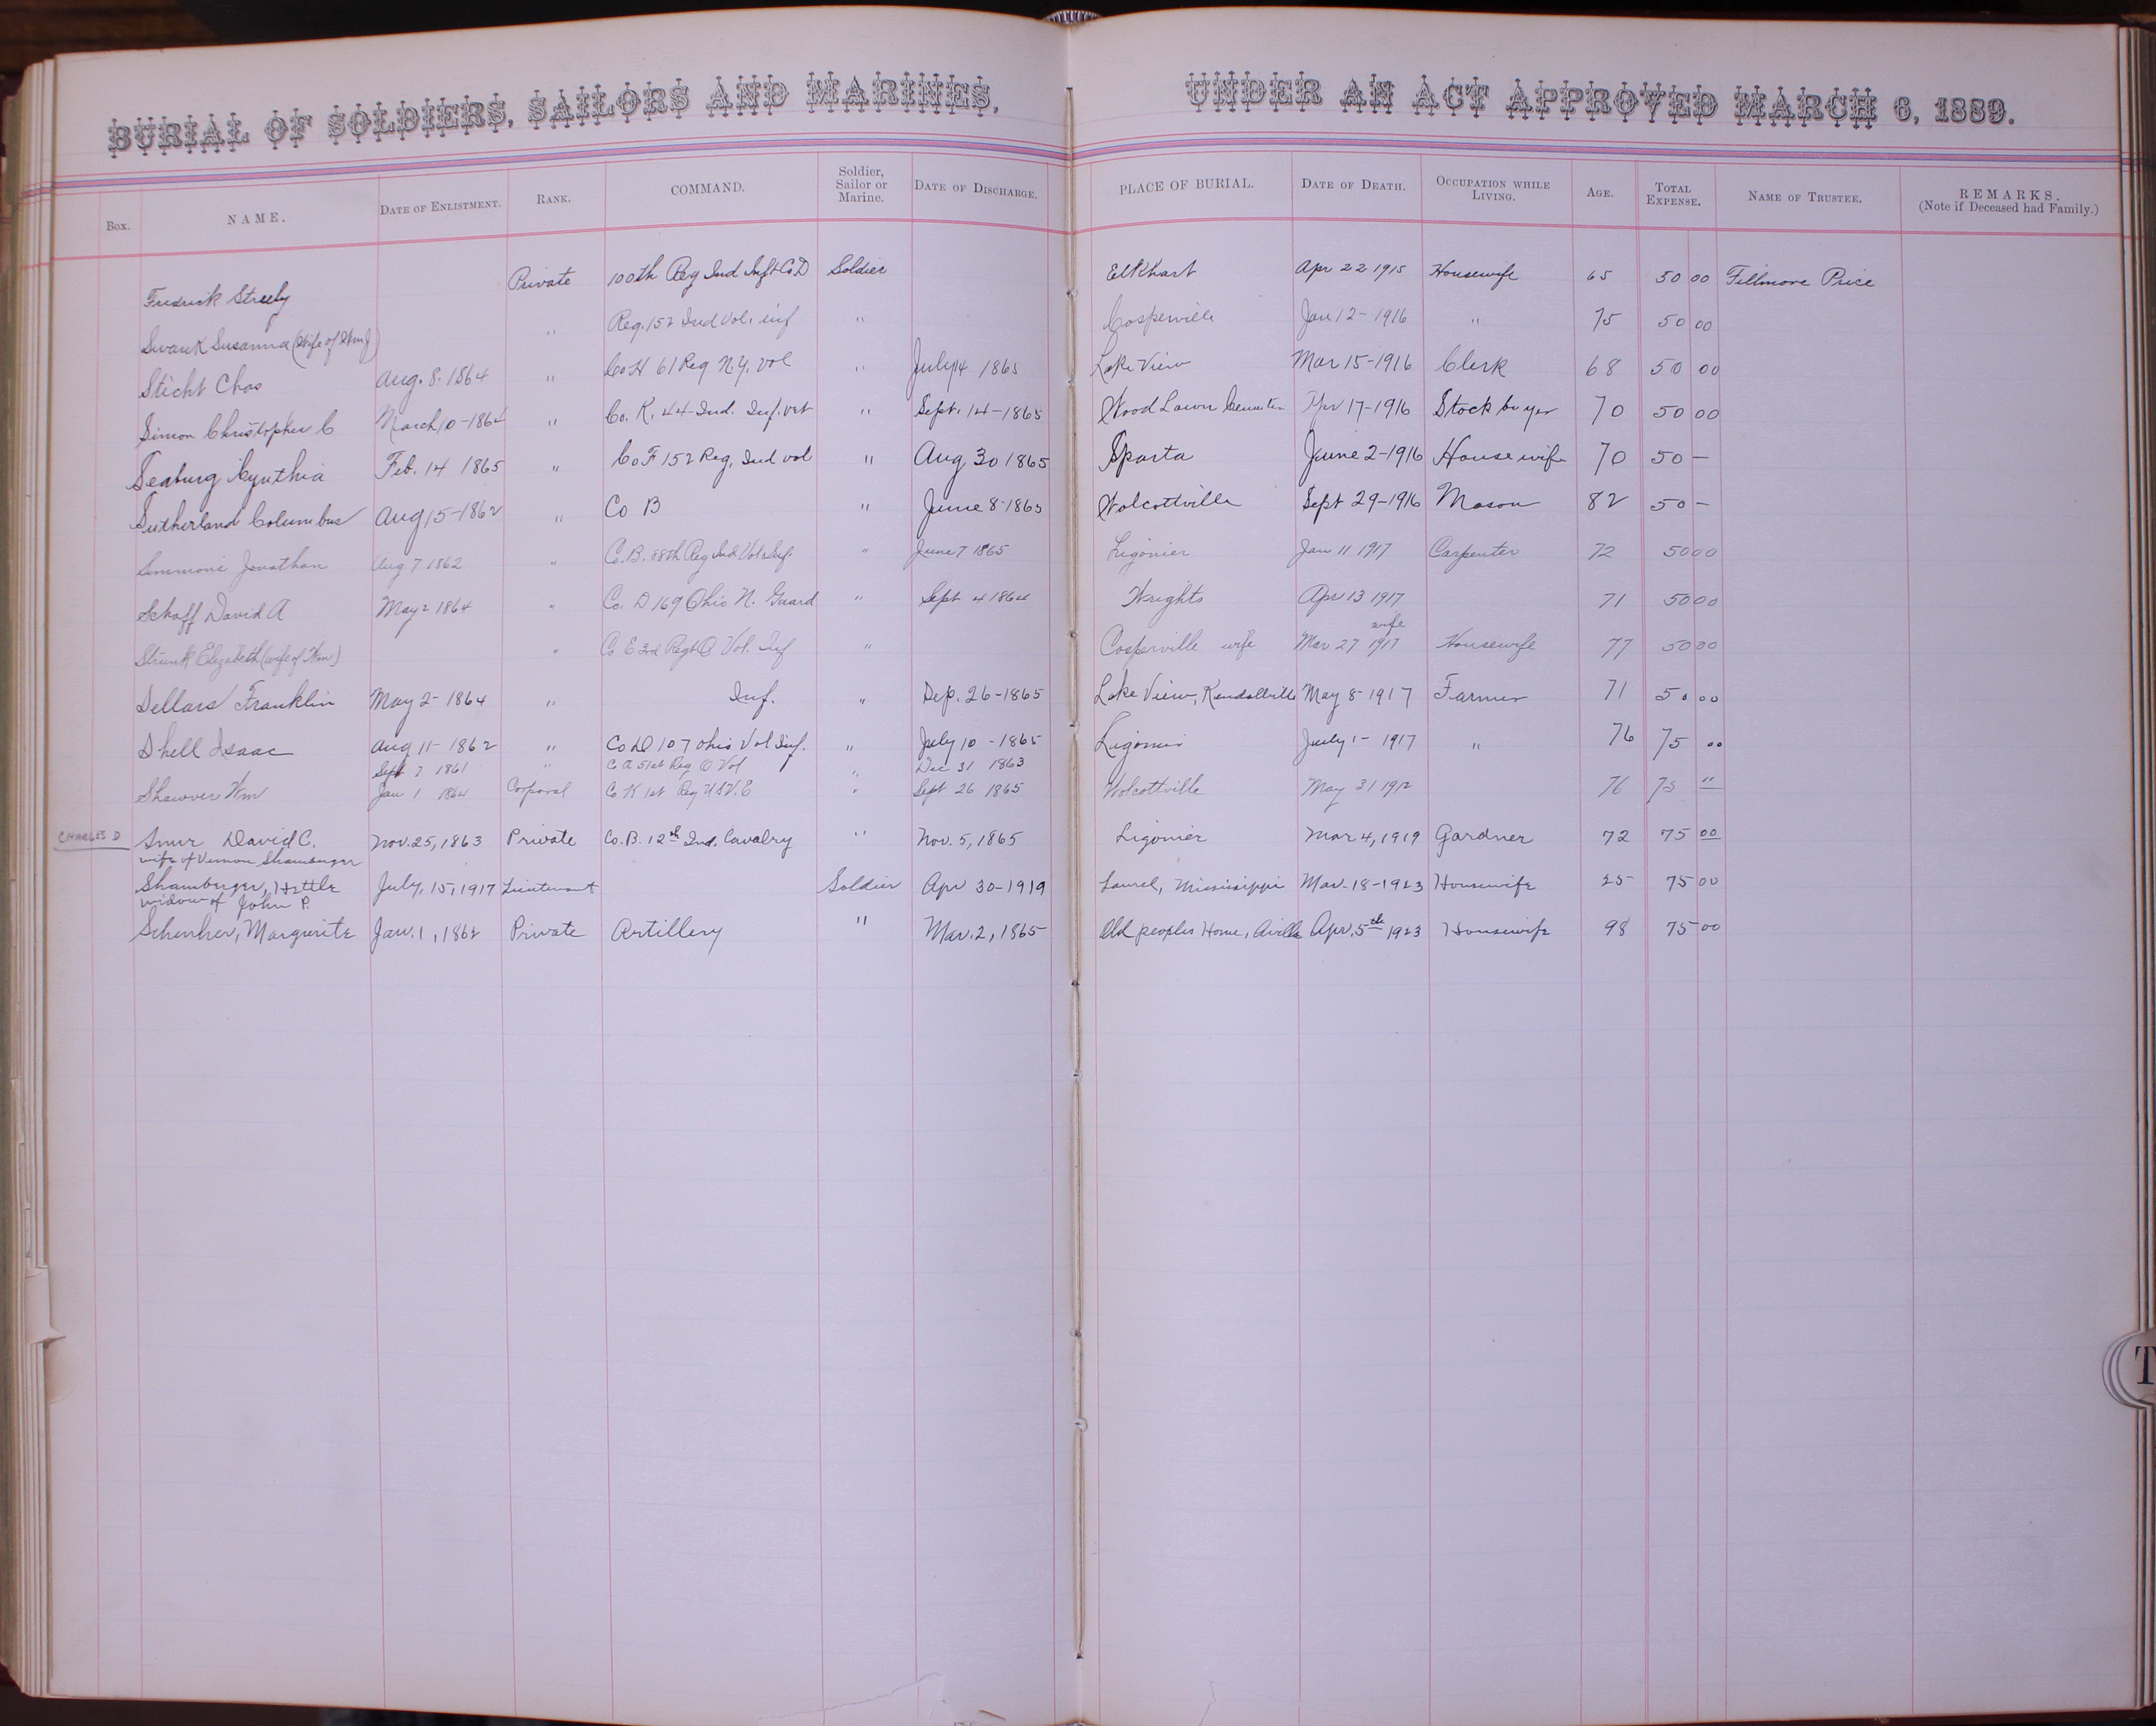 BURIAL OF SOLDIERS, SAILORS AND MARINES, UNDER AN ACT APPROVED MARCH 6, 1889.
Box. NAME. DATE OF ENLISTMENT. RANK. COMMAND. Soldier, Sailor or Marine. DATE OF DISCHARGE. PLACE OF BURIAL. DATE OF DEATH. OCCUPATION WHILE LIVING. AGE. TOTAL EXPENSE. NAME OF TRUSTEE. REMARKS. (Note if Deceased had Family.)
Fredrick Streely Private 100th Reg Ind Inft Co D Soldier Elkhart Apr 22 1915 Housewife 65 50 00 Fillmore Price
Swank Susanna (Wife of ) " Reg. 152 Ind Vol. inf " Cosperville Jan 12-1916 " 75 50 00
Sticht Chas Aug. 8. 1864 " Co H 61 Reg N.Y. Vol " July 14 1865 Lake View Mar 15-1916 Clerk 68 50 00
Simon Christopher C March 10-1864 " Co. K. 44-Ind. Inf. vet " Sept. 14-1865 Wood Lawn Apr 17-1916 Stock buyer 70 50 00
Seaburg Cynthia Feb. 14 1865 " Co F 152 Reg. Ind vol " Aug 30 1865 Sparta June 2-1916 Housewife 70 50 —
Sutherland Columbus Aug 15-1862 " Co B " June 8-1865 Wolcottville Sept 29-1916 Mason 82 50 —
Simmons Jonathan Aug 7 1862 " C. B. 88th Reg Ind Vol Inf. " June 7 1865 Ligonier Jan 11 1917 Carpenter 72 50 00
Schaff David A May 2 1864 " Co. D 169 Ohio N. Guard " Sept 4 1864 Wrights Apr 13 1917 71 50 00
wife
Strunk Elizabeth (wife of Wm) " Co E 3rd Regt O Vol. Inf " Cosperville wife Mar 27 1917 Housewife 77 50 00
Sellars Franklin May 2-1864 " Inf. " Sep. 26-1865 Lake View, Kendallville May 8-1917 Farmer 71 50 00
Shell Isaac Aug 11-1862 " Co D 107 Ohio Vol Inf. " July 10-1865 Ligonier July 1-1917 " 76 75 00
Sept 7 1861 " C A 51st Reg O Vol " Dec 31 1863
Shawver Wm Jan 1 1864 Corporal Co K 1st Reg U S V. E " Sept 26 1865 Wolcottville May 31 1912 76 75 "
CHARLES D Smur David C. Nov. 25, 1863 Private Co. B. 12th Ind. Cavalry " Nov. 5, 1865 Ligonier Mar 4, 1919 Gardner 72 75 00
wife of Vernon Shamberger
Shamberger, Hettie July, 15, 1917 Lieutenant Soldier Apr 30-1919 Laurel, Mississippi Mar-18-1923 Housewife 25 75 00
widow of John P.
Schenher, Margurite Jan. 1, 1862 Private Artillery " Mar. 2, 1865 Old peoples Home, Avilla Apr. 5th 1923 Housewife 98 75 00
T